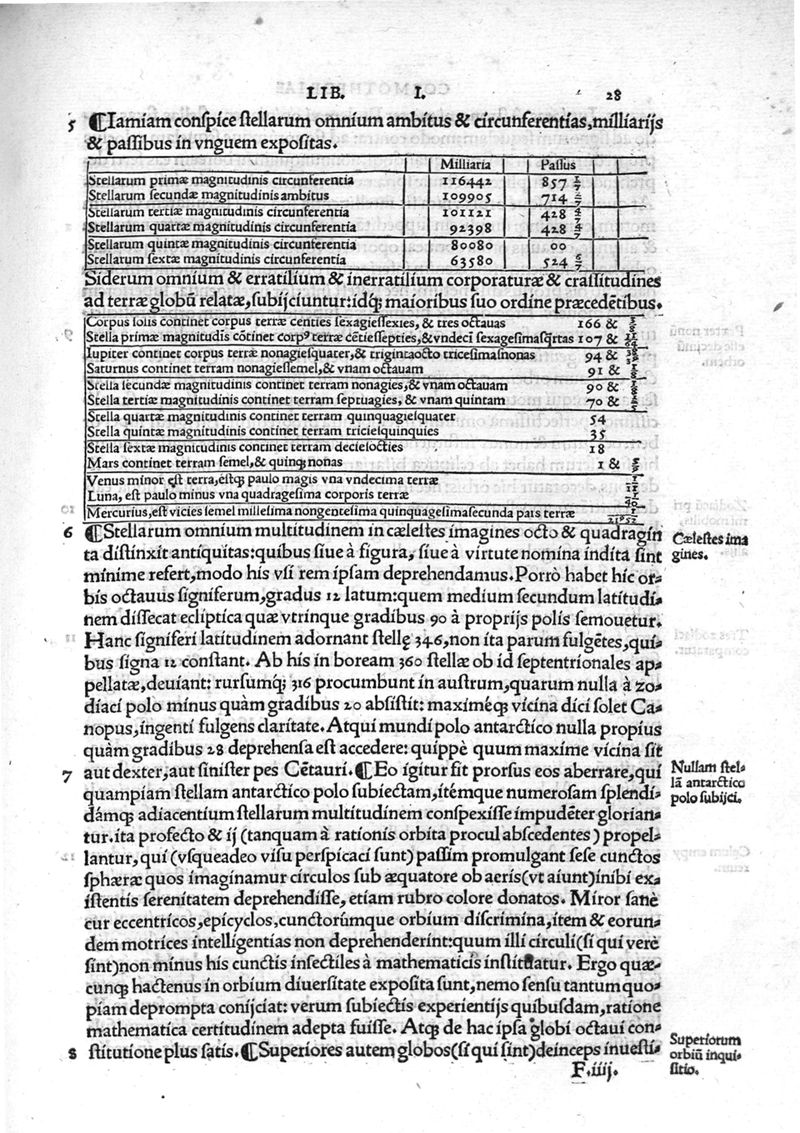 LIB. I. 28
5 ¶Iamiam conſpice ſtellarum omnium ambitus & circunferentias, milliarijs
& paſſibus in vnguem expoſitas.
Milliaria Paſſus
Stellarum primæ magnitudinis circunferentia 116442 857 1/7
Stellarum ſecundæ magnitudinis ambitus 109905 714 2/7
Stellarum tertiæ magnitudinis circunferentia 101121 428 4/7
Stellarum quartæ magnitudinis circunferentia 92398 428 4/7
Stellarum quintæ magnitudinis circunferentia 80080 00
Stellarum ſextæ magnitudinis circunferentia 63580 524 6/7
Siderum omnium & erratilium & inerratilium corporaturæ & craſſitudines
ad terræ globū relatæ, ſubijciuntur: idq; maioribus ſuo ordine præcedētibus.
Corpus ſolis continet corpus terræ centies ſexagieſſexies, & tres octauas 166 & 3/8
Stella primæ magnitudīs cōtinet corpꝰ terræ cētieſſepties, & vndeci ſexageſimaſq̄rtas 107 & 11/64
Iupiter continet corpus terræ nonagieſquater, & trigintaocto triceſimaſnonas 94 &
Saturnus continet terram nonagieſſemel, & vnam octauam 91 & 1/8
Stella ſecundæ magnitudinis continet terram nonagies, & vnam octauam 90 & 1/8
Stella tertiæ magnitudinis continet terram ſeptuagies, & vnam quintam 70 & 1/5
Stella quartæ magnitudinis continet terram quinquagieſquater 54
Stella quintæ magnitudinis continet terram tricieſquinquies 35
Stella ſextæ magnitudinis continet terram decieſocties 18
Mars continet terram ſemel, & quinq; nonas 1 & 5/9
Venus minor eſt terra, eſtq; paulo magis vna vndecima terræ 1/11
Luna, eſt paulo minus vna quadrageſima corporis terræ 1/40
Mercurius, eſt vicies ſemel milleſima nongenteſima quinquageſimaſecunda pars terræ 1/21952
6 ¶Stellarum omnium multitudinem in cæleſtes imagines octo & quadragin
ta diſtinxit antiquitas: quibus ſiue à figura, ſiue à virtute nomina indita ſint
minime refert, modo his vſi rem ipſam deprehendamus. Porrò habet hic or-
bis octauus ſigniferum, gradus 12 latum: quem medium ſecundum latitudi-
nem diſſecat ecliptica quæ vtrinque gradibus 90 à proprijs polis ſemouetur.
Hanc ſigniferi latitudinem adornant ſtellę 346, non ita parum fulgētes, qui-
bus ſigna 12 conſtant. Ab his in boream 360 ſtellæ ob id ſeptentrionales ap-
pellatæ, deuiant: rurſumq; 316 procumbunt in auſtrum, quarum nulla à zo-
diaci polo minus quàm gradibus 20 abſiſtit: maximéq; vicina dici ſolet Ca-
nopus, ingenti fulgens claritate. Atqui mundi polo antarctico nulla propius
quàm gradibus 28 deprehenſa eſt accedere: quippè quum maxime vicina ſit
7 aut dexter, aut ſiniſter pes Cētauri. ¶Eo igitur fit prorſus eos aberrare, qui
quampiam ſtellam antarctico polo ſubiectam, itémque numeroſam ſplendi-
dámq; adiacentium ſtellarum multitudinem conſpexiſſe impudēter glorian-
tur. ita profecto & ij (tanquam à rationis orbita procul abſcedentes) propel-
lantur, qui (vſqueadeo viſu perſpicaci ſunt) paſſim promulgant ſeſe cunctos
ſphæræ quos imaginamur circulos ſub æquatore ob aeris (vt aiunt) inibi ex-
iſtentis ſerenitatem deprehendiſſe, etiam rubro colore donatos. Miror ſanè
cur eccentricos, epicyclos, cunctorúmque orbium diſcrimina, item & eorun-
dem motrices intelligentias non deprehenderint: quum illi circuli (ſi qui verè
ſint) non minus his cunctis inſectiles à mathematicis inſtituatur. Ergo quæ-
cunq; hactenus in orbium diuerſitate expoſita ſunt, nemo ſenſu tantum quo-
piam deprompta conijciat: verum ſubiectis experientijs quibuſdam, ratione
mathematica certitudinem adepta fuiſſe. Atq; de hac ipſa globi octaui con-
8 ſtitutione plus ſatis. ¶Superiores autem globos (ſi qui ſint) deinceps inueſti-
F.iiij.
Cæleſtes ima
gines.
Nullam ſtel-
lā antarctico
polo ſubijci.
Superiorum
orbiū inqui-
ſitio.